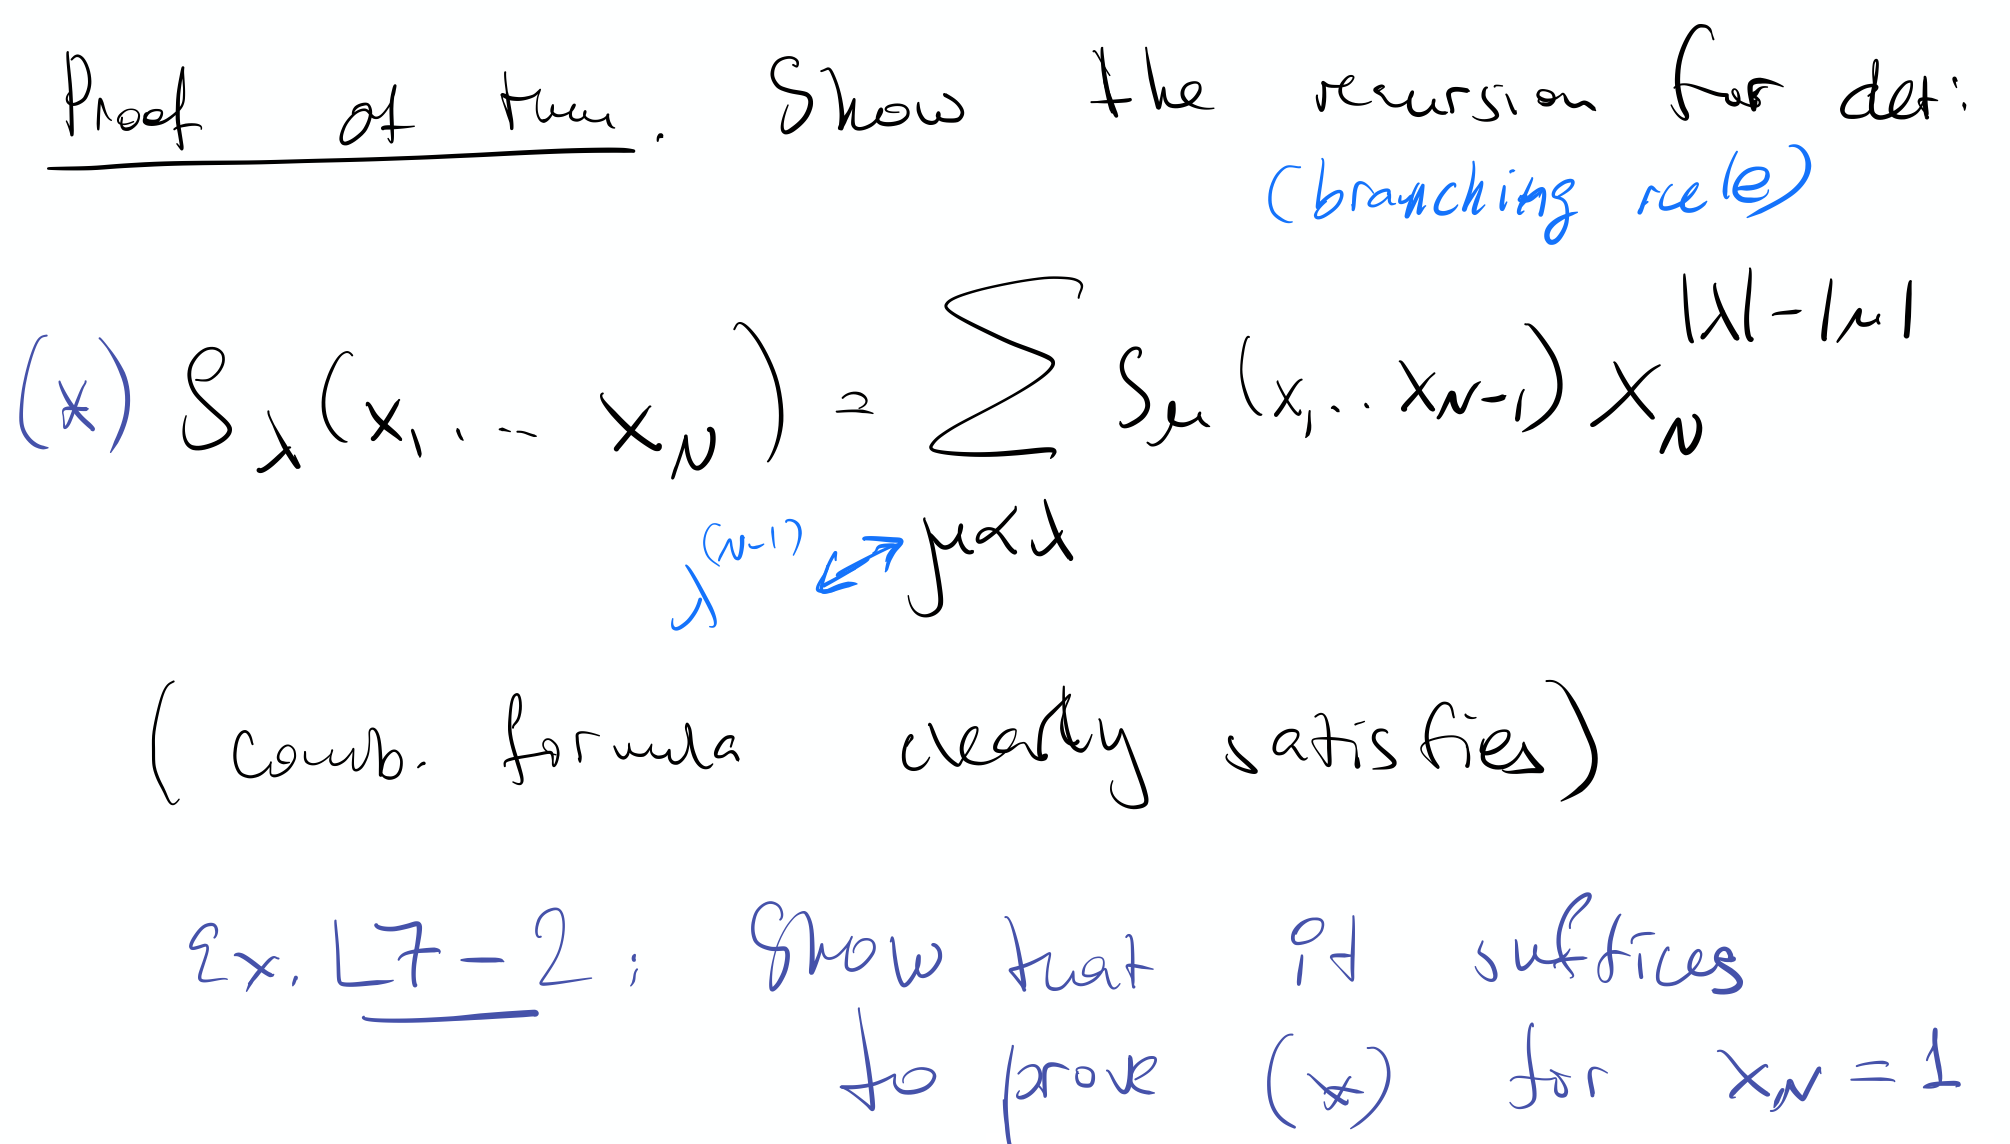 Proof of thm. Show the recursion for det:
(branching rule)
(*) S_λ(x_1, ... x_N) = ∑ S_μ(x_1 .. x_{N-1}) x_N^{|λ|-|μ|}
λ^{(N-1)} ↔ μ ≺ λ
(comb. formula clearly satisfies)
Ex. L7-2: Show that it suffices
to prove (*) for x_N = 1